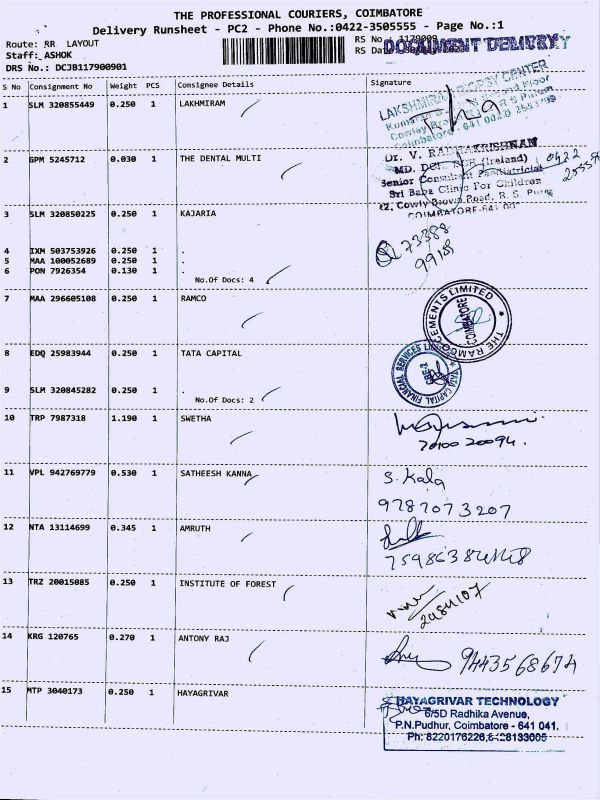 THE PROFESSIONAL COURIERS, COIMBATORE
Delivery Runsheet - PC2 - Phone No.:0422-3505555 - Page No.:1
Route: RR LAYOUT
RS No : 1179009
Staff: ASHOK
RS Date
DOCUMENT DELIVERY
DRS No.: DCJB117900901
S No Consignment No Weight PCS Consignee Details Signature
1 SLM 320855449 0.250 1 LAKHMIRAM
2 GPM 5245712 0.030 1 THE DENTAL MULTI
Dr. V. RADHAKRISHNAN
MD. DCH. (Ireland)
0422
Senior Consultant Paediatrician
Sri Baba Clinic For Children
Cowly Brown Road, R. S. Puram
COIMBATORE-641 002
3 SLM 320850225 0.250 1 KAJARIA
73388
99188
4 IXM 503753926 0.250 1 .
5 MAA 100052689 0.250 1 .
6 PON 7926354 0.130 1 .
No.Of Docs: 4
7 MAA 296605108 0.250 1 RAMCO
THE RAMCO CEMENTS LIMITED
COIMBATORE
8 EDQ 25983944 0.250 1 TATA CAPITAL
TATA CAPITAL FINANCIAL SERVICES LIMITED
9 SLM 320845282 0.250 1 .
No.Of Docs: 2
10 TRP 7987318 1.190 1 SWETHA
70100 20094.
11 VPL 942769779 0.530 1 SATHEESH KANNA
S. Kala
9787073207
12 NTA 13114699 0.345 1 AMRUTH
13 TRZ 20015085 0.250 1 INSTITUTE OF FOREST
14 KRG 120765 0.270 1 ANTONY RAJ
9443568674
15 MTP 3040173 0.250 1 HAYAGRIVAR
HAYAGRIVAR TECHNOLOGY
6/5D Radhika Avenue,
P.N.Pudhur, Coimbatore - 641 041.
Ph: 8220176226,